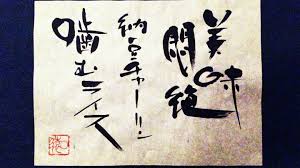 美味
悶絶
納豆チャーハン
噛むライス